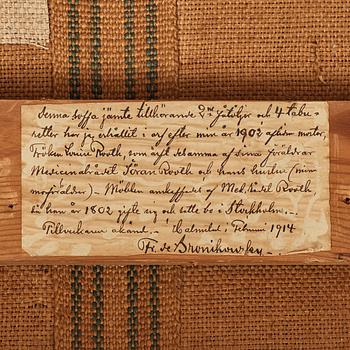 Denna soffa jämte tillhörande 2ne fåtöljer och 4 tabu-
retter har jag erhållit i arf efter min år 1902 aflidna moster,
Fröken Louise Rooth, som ärft desamma af sina föräldrar
Medicinalrådet Göran Rooth och hans hustru (min
morföräldrar). Möblen anskaffades af Med.rådet Rooth
då han år 1802 gifte sig och satte bo i Stockholm. -
Tillverkaren okänd. - Halmstad, i Februari 1914
Fr. de Bronikowsky -.